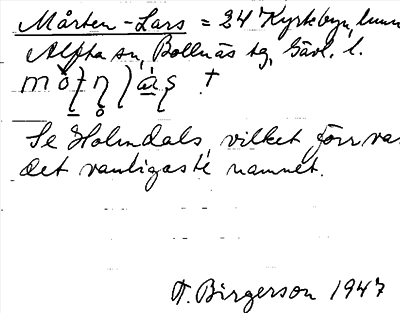 Mårten-Lars = 24 Kyrkbyn,
Alfta sn, Bollnäs tg, Gävl. l.
Se Holmdals, vilket förr va
det vanligaste namnet.
A. Birgerson 1947